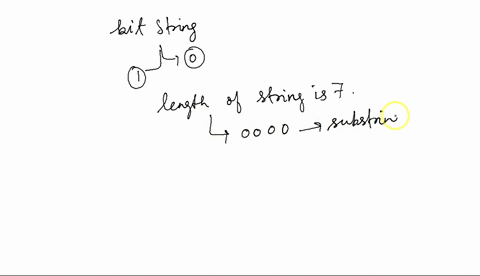 bit string
1 0
length of string is 7.
0000 → substrin